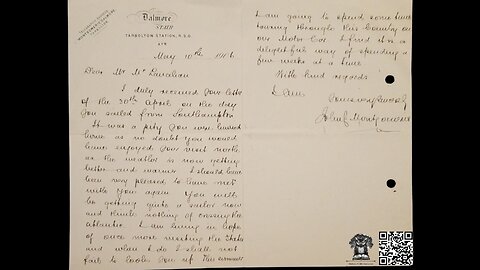 Dalmore
STAIR
TARBOLTON STATION, R.S.O.
AYR
May 10th
Dear Mr
I duly received your letter
of the 30th April on the day
you sailed from Southampton
It was a pity you were hurried
home as no doubt you would
have enjoyed your visit north
as the weather is now getting
better and warmer I should have
been very pleased to have met
with you again You will
be getting quite a sailor now
and think nothing of crossing the
atlantic I am living in hope
of once more visiting the States
and when I do I shall not
fail to look you up This summer
I am going to spend some time
touring through this Country on
our Motor Car I find it is a
delightful way of spending a
few weeks at a time
With kind regards
I am
Yours very truly
John Montgomerie